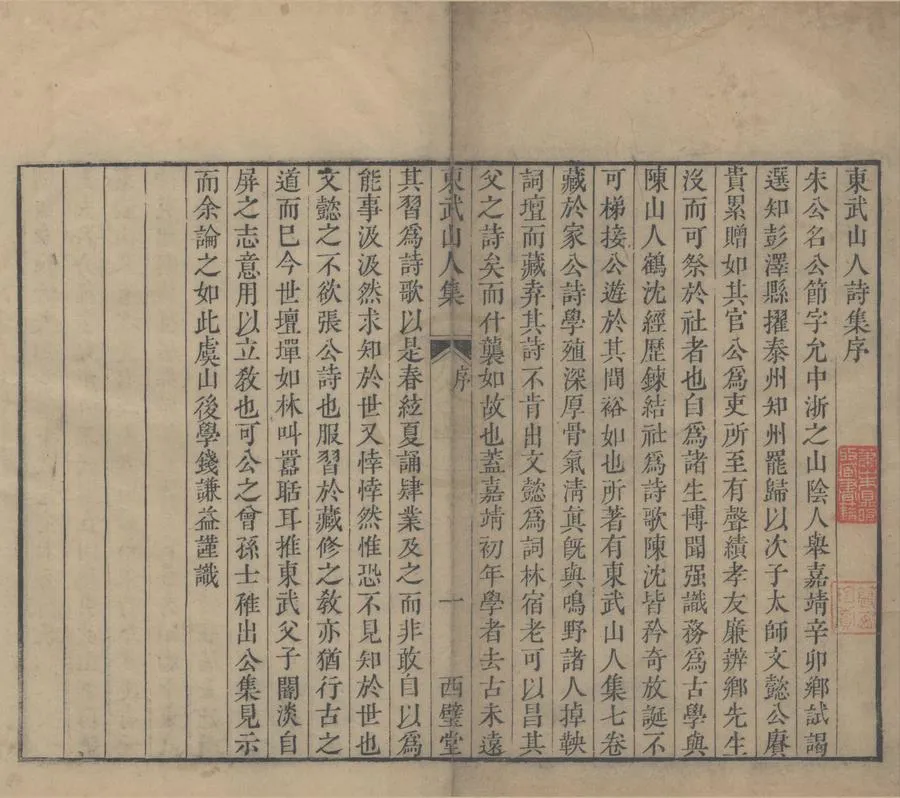 東武山人詩集序
朱公名公節字允中浙之山陰人舉嘉靖辛卯鄉試謁
選知彭澤縣擢泰州知州罷歸以次子太師文懿公賡
貴累贈如其官公爲吏所至有聲績孝友廉辨鄉先生
沒而可祭於社者也自爲諸生博聞强識務爲古學與
陳山人鶴沈經歷鍊結社爲詩歌陳沈皆矜奇放誕不
可梯接公遊於其間裕如也所著有東武山人集七卷
藏於家公詩學殖深厚骨氣淸真旣與鳴野諸人掉鞅
詞壇而藏弆其詩不肯出文懿爲詞林宿老可以昌其
父之詩矣而什襲如故也蓋嘉靖初年學者去古未遠
東武山人集
序
一
西璧堂
其習爲詩歌以是春絃夏誦肄業及之而非敢自以爲
能事汲汲然求知於世又悻悻然惟恐不見知於世也
文懿之不欲張公詩也服習於藏修之教亦猶行古之
道而已今世壇墠如林叫囂聒耳推東武父子闇淡自
屏之志意用以立教也可公之曾孫士稚出公集見示
而余論之如此虞山後學錢謙益謹識